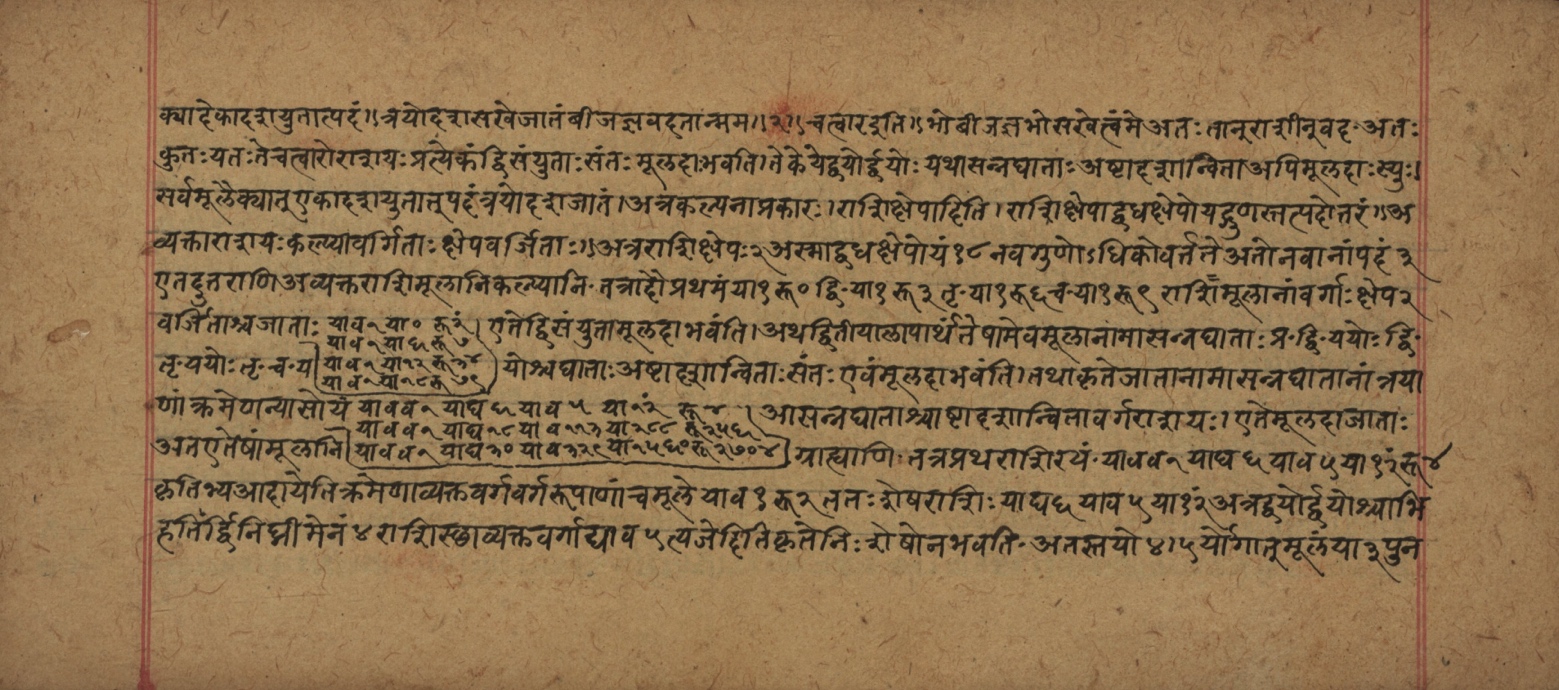 क्यादेकादशयुतात्पदं॥त्रयोदशसखेजातंबीजज्ञवदतान्मम॥२॥चत्वारइति॥भोबीजज्ञभोसखेत्वंमेअतः तान्राशीन्वद॰अतः
कुतः यतः तेचत्वारोराशयः प्रत्येकंद्विसंयुताः संतः मूलदाभवति।तेकेयेद्वयोर्द्वयोः यथासन्नघाताः अष्टादशान्विताअपिमूलदाः स्युः।
सर्वमूलैक्यात्एकादशयुतात्पदंत्रयोदशजातं।अत्रकल्पनाप्रकारः।राशिक्षेपादिति।राशिक्षेपाद्वधक्षेपोयद्गुणस्तत्पदोत्तरं॥अ
व्यक्ताराशयः कल्प्यावर्गिताः क्षेपवर्जिताः॥अत्रराशिक्षेपः २ अस्माद्वधक्षेपोयं १८ नवगुणोऽधिकोवर्त्ततेअतोनवानांपदं ३
एतदुत्तराणिअव्यक्तराशिमूलानिकल्प्यानि॰तत्रादौप्रथमंया १ रू ० द्वि॰या १ रू ३ तृ॰या १ रू ६ च॰या १ रू ९ राशिमूलानांवर्गाः क्षेप २
वर्जिताश्चजाताः याव १ या ० रू २ं। एतेद्विसंयुतामूलदाभवंति।अथद्वितीयालापार्थंतेषामेवमूलानामासन्नघाताः प्र॰द्वि॰ययोः द्वि॰
याव १ या ६ रू ७
तृ॰ययोः तृ॰च॰य याव १ या १२ रू ३४ योश्चघाताः अष्टादशान्विताः संतः एवंमूलदाभवंति।तथाकृतेजातानामासन्नघातानांत्रया
याव १ या १८ रू ७९
णांक्रमेणन्यासोयं यावव १ याघ ६ याव ५ या १२ं रू ४। आसन्नघाताश्चाष्टादशान्वितावर्गराशयः।एतेमूलदाजाताः
यावव १ याघ १८ याव ११३ या २८८ रू २५६
अतएतेषांमूलानि यावव १ याघ ३० याव ३२९ या १५६० रू २७०४ ग्राह्याणि॰तत्रप्रथराशिरयं॰यावव १ याघ ६ याव ५ या १२ं रू ४
कृतिभ्यआदायेतिक्रमेणाव्यक्तवर्गवर्गरूपाणांचमूले याव १ रू २ ततः शेषराशिः याघ ६ याव ५ या १२ं अत्रद्वयोर्द्वयोश्चाभि
हतिंर्द्विनिघ्नीमेनं ४ राशिस्छाव्यक्तवर्गाद्याव ५ त्यजेदितिकृतेनिः शेषोनभवति॰अतस्तयो ४।५ र्योगात्मूलंया ३ पुन